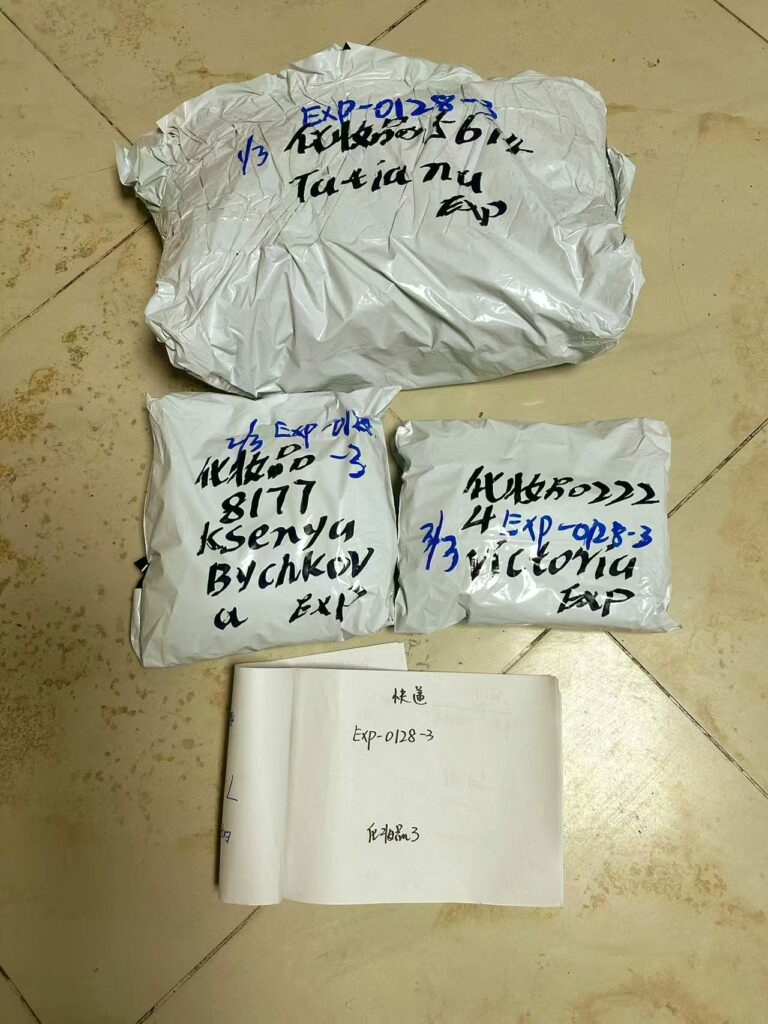 EXP-0128-3
1/3 化妆品5614
Tatiana
Exp
2/3 Exp-0128
-3
化妆品
8177
Ksenya
Bychkov
a Exp
化妆品0222
4 Exp-0128-3
3/3 Victoria
Exp
快递
Exp-0128-3
化妆品3